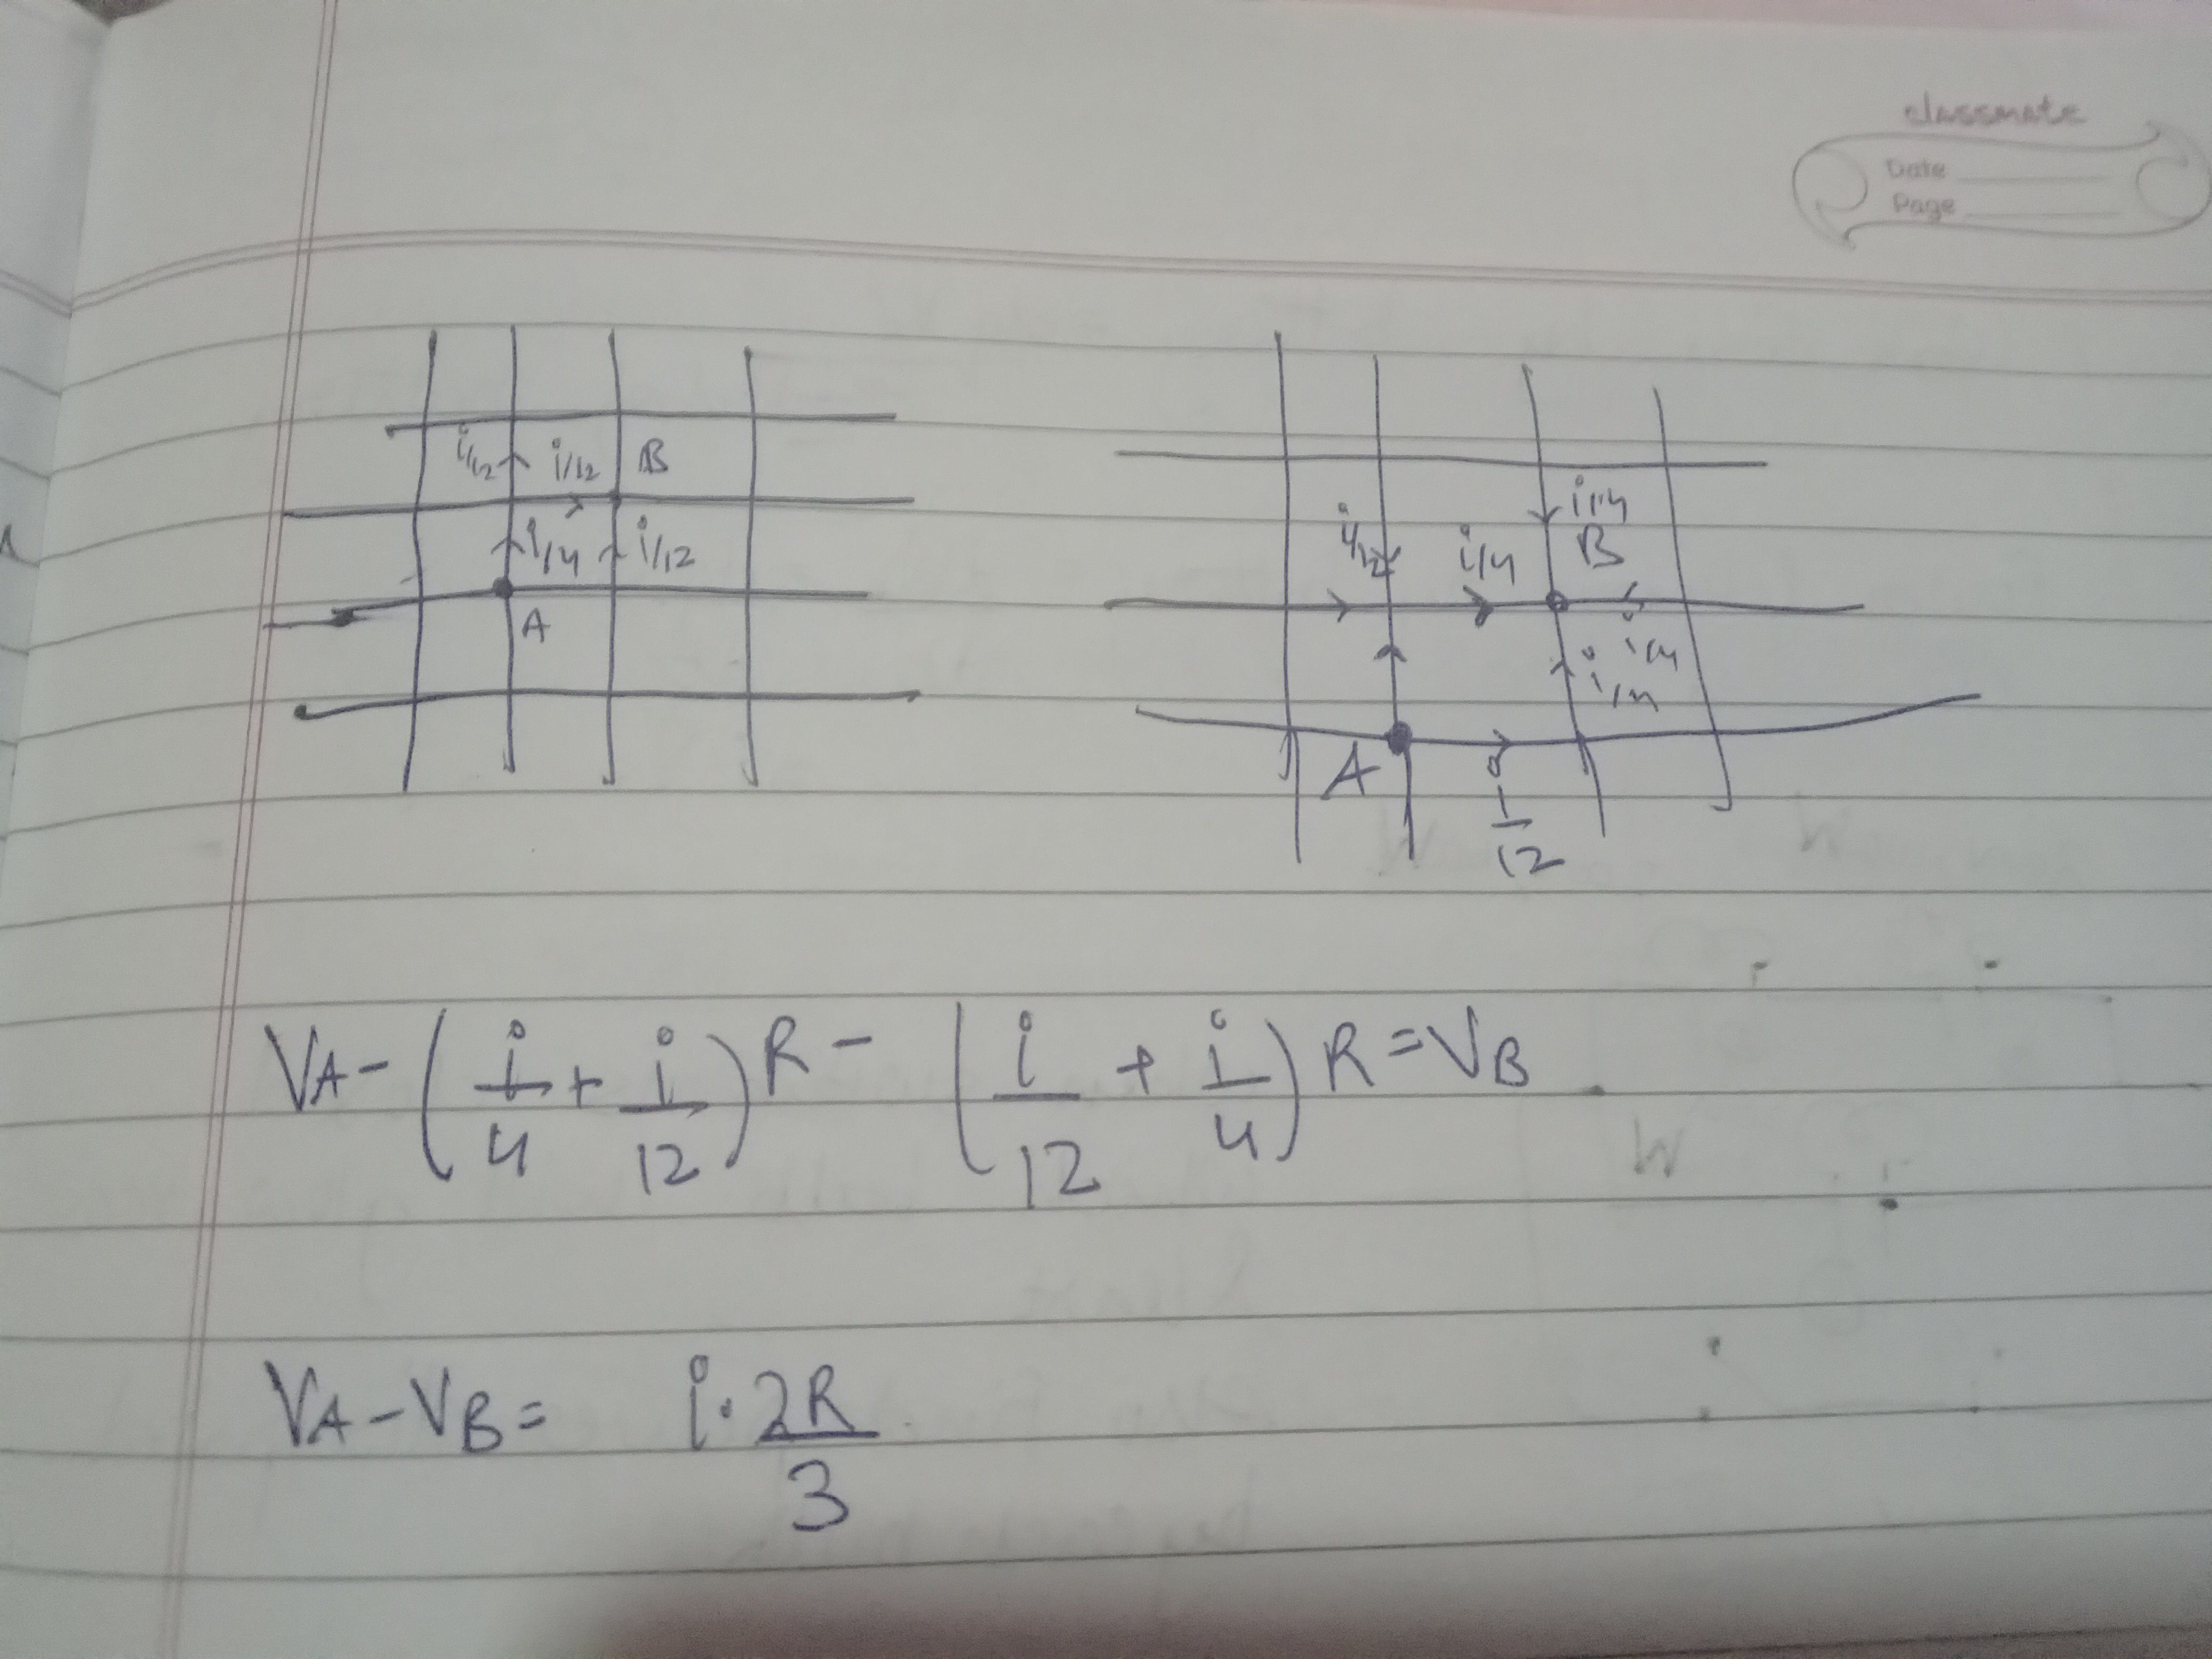 classmate
Date
Page
i/12 i/12 B
i/4 i/12
A
i/4
i/12 i/4 B
i/4
i/4
A
i/12
VA - (i/4 + i/12) R - (i/12 + i/4) R = VB
VA - VB = i · 2R/3